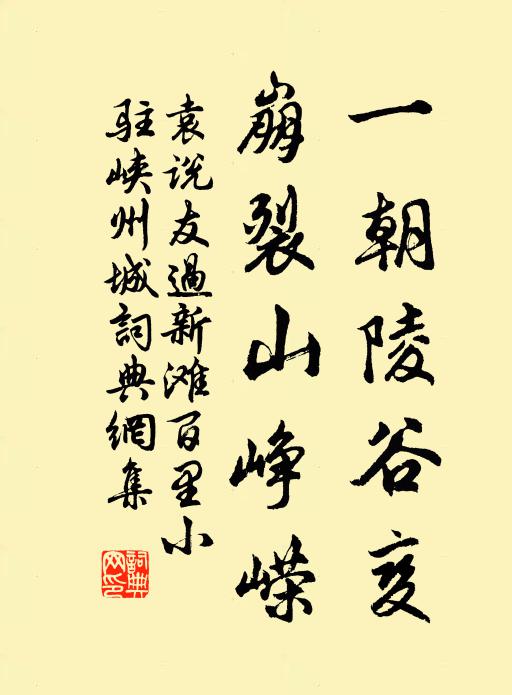 一朝陵谷变
崩裂山峥嵘
袁说友過新滩百里小
驻峡州城詞典網集
詞典网印